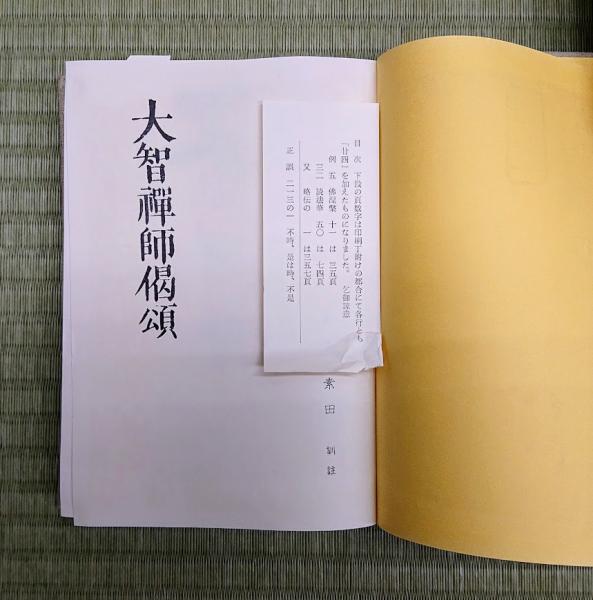 目次 下段の頁数字は印刷丁附けの都合にて各行とも
「廿四」を加えたものになりました。 乞御諒意
例 五 佛涅槃 十一 は 三五頁
三二 読法華 五〇 は 七四頁
又 略伝の 一 は三五七頁
正誤 二一三の一 不時、是は時、不是
素田 訓註
大智禪師偈頌